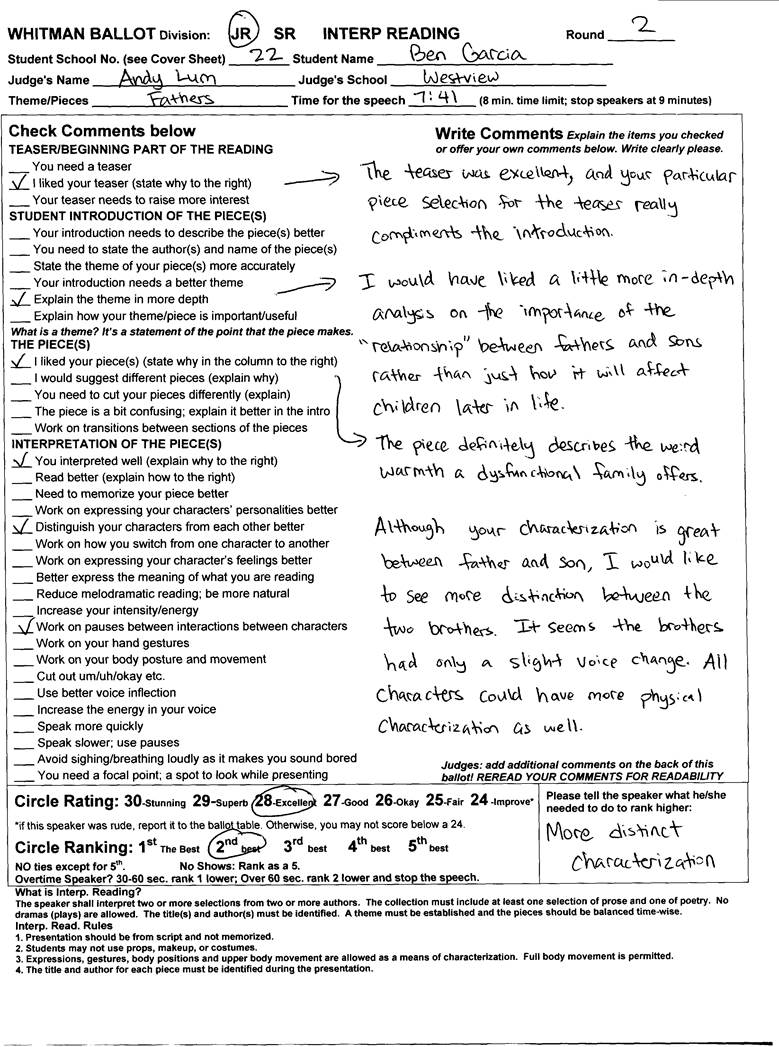 WHITMAN BALLOT Division: JR SR INTERP READING Round 2
Student School No. (see Cover Sheet) 22 Student Name Ben Garcia
Judge's Name Andy Lum Judge's School Westview
Theme/Pieces Fathers Time for the speech 7:41 (8 min. time limit; stop speakers at 9 minutes)
Check Comments below
TEASER/BEGINNING PART OF THE READING
___ You need a teaser
✓ I liked your teaser (state why to the right)
___ Your teaser needs to raise more interest
STUDENT INTRODUCTION OF THE PIECE(S)
___ Your introduction needs to describe the piece(s) better
___ You need to state the author(s) and name of the piece(s)
___ State the theme of your piece(s) more accurately
___ Your introduction needs a better theme
✓ Explain the theme in more depth
___ Explain how your theme/piece is important/useful
What is a theme? It's a statement of the point that the piece makes.
THE PIECE(S)
✓ I liked your piece(s) (state why in the column to the right)
___ I would suggest different pieces (explain why)
___ You need to cut your pieces differently (explain)
___ The piece is a bit confusing; explain it better in the intro
___ Work on transitions between sections of the pieces
INTERPRETATION OF THE PIECE(S)
✓ You interpreted well (explain why to the right)
___ Read better (explain how to the right)
___ Need to memorize your piece better
___ Work on expressing your characters' personalities better
✓ Distinguish your characters from each other better
___ Work on how you switch from one character to another
___ Work on expressing your character's feelings better
___ Better express the meaning of what you are reading
___ Reduce melodramatic reading; be more natural
___ Increase your intensity/energy
✓ Work on pauses between interactions between characters
___ Work on your hand gestures
___ Work on your body posture and movement
___ Cut out um/uh/okay etc.
___ Use better voice inflection
___ Increase the energy in your voice
___ Speak more quickly
___ Speak slower; use pauses
___ Avoid sighing/breathing loudly as it makes you sound bored
___ You need a focal point; a spot to look while presenting
Write Comments Explain the items you checked
or offer your own comments below. Write clearly please.
The teaser was excellent, and your particular
piece selection for the teaser really
compliments the introduction.
I would have liked a little more in-depth
analysis on the importance of the
"relationship" between fathers and sons
rather than just how it will affect
children later in life.
The piece definitely describes the weird
warmth a dysfunctional family offers.
Although your characterization is great
between father and son, I would like
to see more distinction between the
two brothers. It seems the brothers
had only a slight voice change. All
characters could have more physical
characterization as well.
Judges: add additional comments on the back of this
ballot! REREAD YOUR COMMENTS FOR READABILITY
Circle Rating: 30-Stunning 29-Superb 28-Excellent 27-Good 26-Okay 25-Fair 24-Improve*
*if this speaker was rude, report it to the ballot table. Otherwise, you may not score below a 24.
Circle Ranking: 1st The Best 2nd best 3rd best 4th best 5th best
NO ties except for 5th. No Shows: Rank as a 5.
Overtime Speaker? 30-60 sec. rank 1 lower; Over 60 sec. rank 2 lower and stop the speech.
Please tell the speaker what he/she
needed to do to rank higher:
More distinct
characterization
What is Interp. Reading?
The speaker shall interpret two or more selections from two or more authors. The collection must include at least one selection of prose and one of poetry. No
dramas (plays) are allowed. The title(s) and author(s) must be identified. A theme must be established and the pieces should be balanced time-wise.
Interp. Read. Rules
1. Presentation should be from script and not memorized.
2. Students may not use props, makeup, or costumes.
3. Expressions, gestures, body positions and upper body movement are allowed as a means of characterization. Full body movement is permitted.
4. The title and author for each piece must be identified during the presentation.